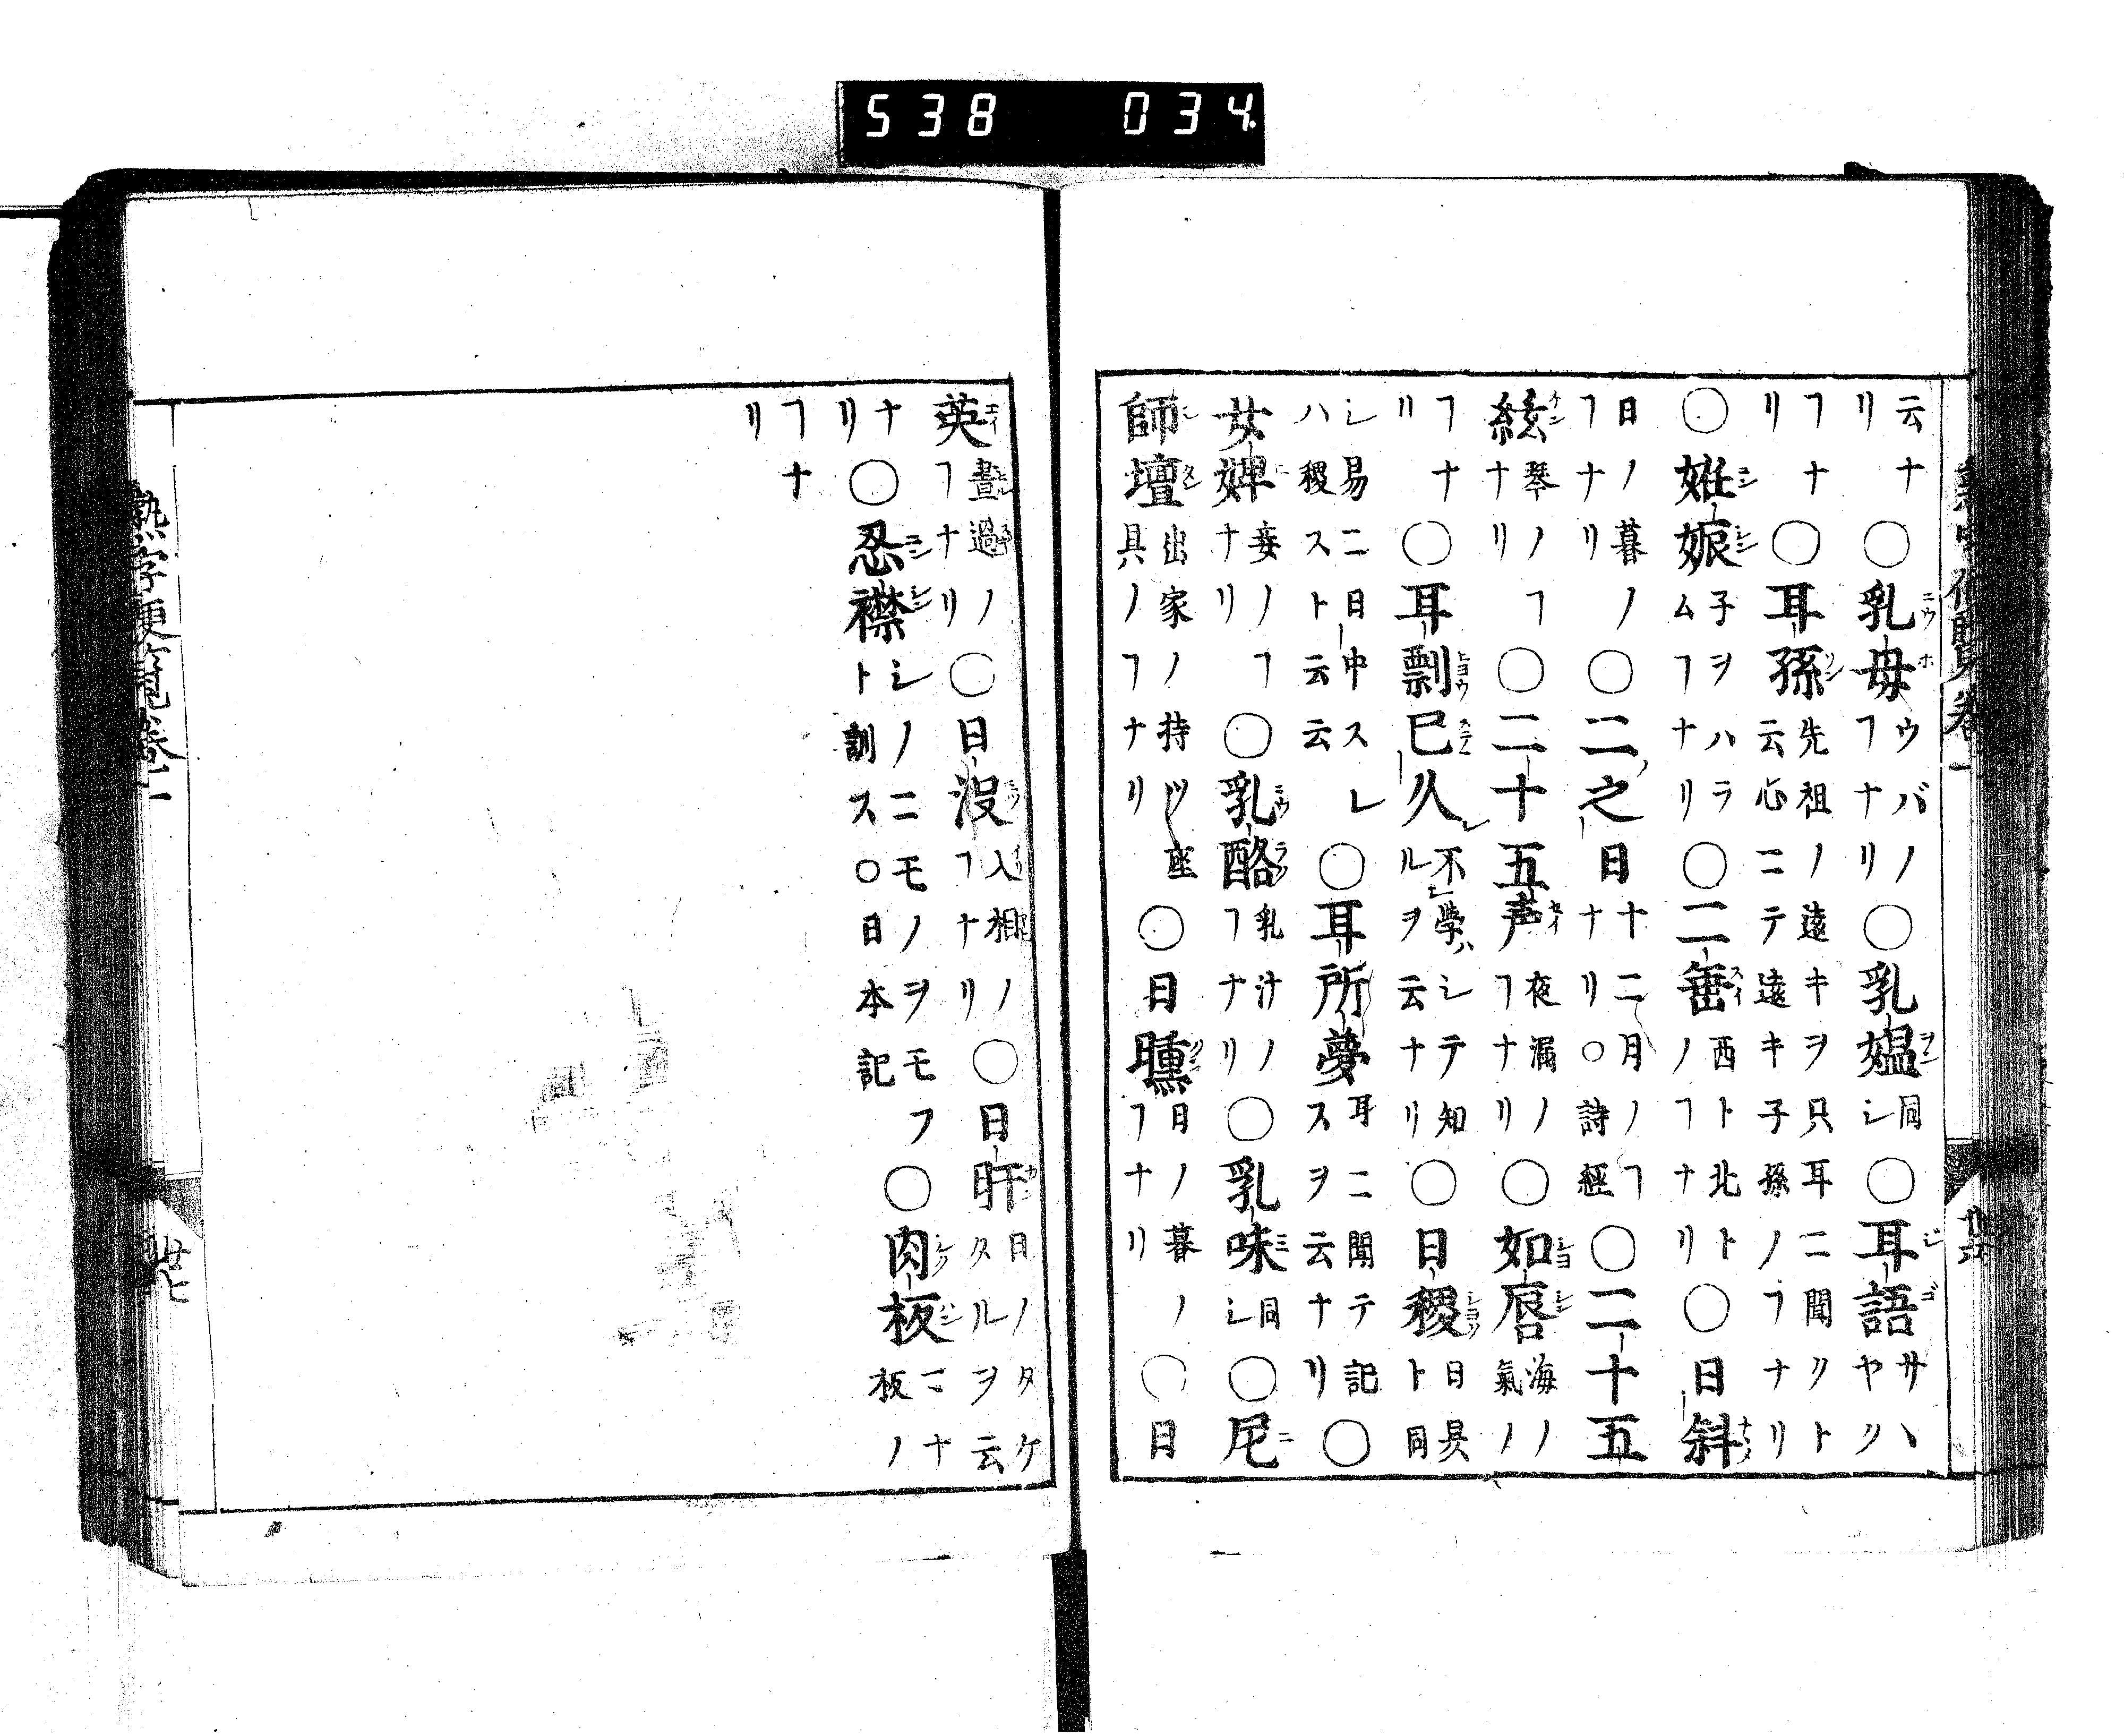 538 034
云ナリ○乳母ウバノヿナリ○乳媼同シ○耳語サヽヤク
ヿナリ○耳孫先祖ノ遠キヲ只耳ニ聞クト云心ニテ遠キ子孫ノヿナリ
○妊娠子ヲハラムヿナリ○二垂西ト北トノヿナリ○日斜
日ノ暮ノヿナリ○二之日十二月ノヿナリ○詩經○二十五
絃琴ノヿナリ○二十五声夜漏ノヿナリ○如唇海氣ノ
ヿナリ○耳剽已久不學ハシテ知ルヲ云ナリ○日稷日昃ト同
シ易ニ日中スレハ稷スト云云○耳所夢耳ニ聞テ記スヲ云ナリ○
女婢妾ノヿナリ○乳酪乳汁ノヿナリ○乳味同シ○尼
師壇出家ノ持ツ座具ノヿナリ○日曛日ノ暮ノヿナリ○日
英晝過ノヿナリ○日没入相ノヿナリ○日旰日ノタケタルヲ云
ナリ○忍襟シノニモノヲモフト訓ス○日本記○肉板ニナ板ノ
ヿナリ
熟字便覧卷二
廿七